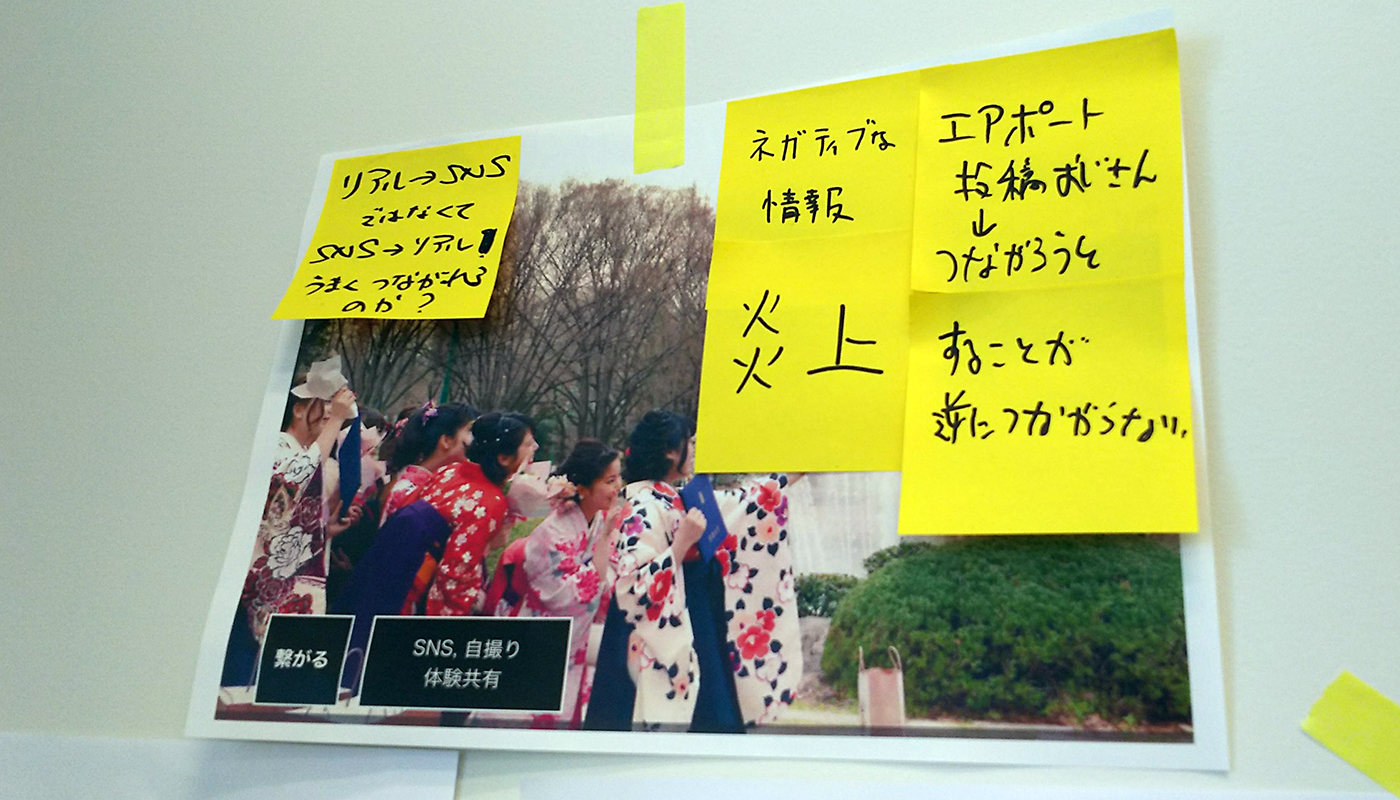 リアル→SNS
ではなくて
SNS→リアル!
うまくつながれる
のか?
ネガティブな
情報
炎上
エアポート
投稿おじさん
↓
つながろうと
することが
逆につながらない.
繋がる
SNS, 自撮り
体験共有